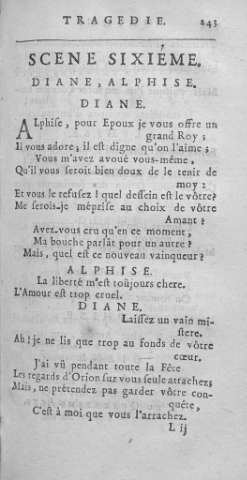 TRAGEDIE. 243
SCENE SIXIÉME.
DIANE, ALPHISE.
DIANE.
ALphise, pour Epoux je vous offre un
grand Roy;
Il vous adore; il est digne qu'on l'aime;
Vous m'avez avoüé vous-même,
Qu'il vous seroit bien doux de le tenir de
moy:
Et vous le refusez! quel dessein est le vôtre?
Me serois-je méprise au choix de vôtre
Amant?
Avez-vous cru qu'en ce moment,
Ma bouche parlât pour un autre?
Mais, quel est ce nouveau vainqueur?
ALPHISE.
La liberté m'est toûjours chere.
L'Amour est trop cruel.
DIANE.
Laissez un vain mi-
stere.
Ah! je ne lis que trop au fonds de vôtre
cœur.
J'ai vû pendant toute la Fête
Les regards d'Orion sur vous seule attachez;
Mais, ne prétendez pas garder vôtre con-
quéte,
C'est à moi que vous l'arrachez.
L ij